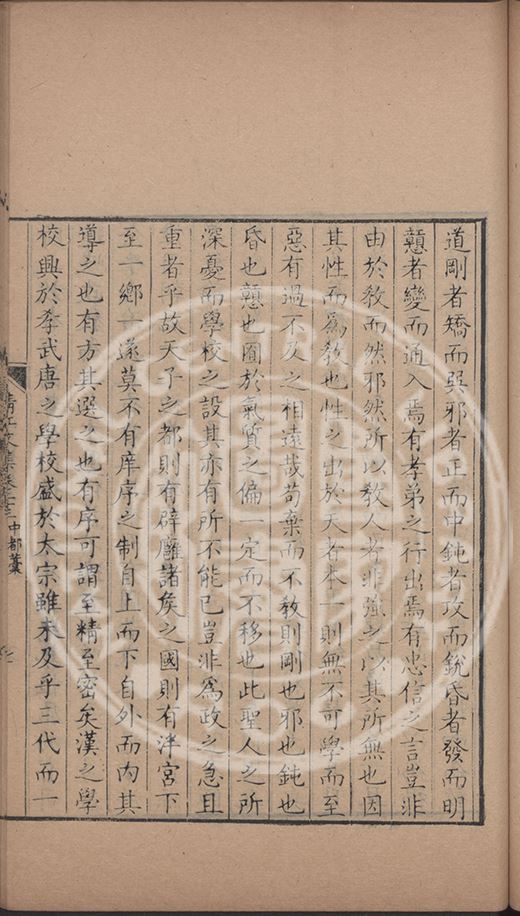 道剛者矯而巽邪者正而中鈍者攻而銳昏者發而明
戇者變而通入焉有孝弟之行出焉有忠信之言豈非
由於敎而然邪然所以敎人者非強之以其所無也因
其性而爲敎也性之出於天者本一則無不可學而至
惡有過不及之相遠哉苟棄而不敎則剛也邪也鈍也
昏也戇也囿於氣質之偏一定而不移也此聖人之所
深憂而學校之設其亦有所不能已豈非爲政之急且
重者乎故天子之都則有辟廱諸矦之國則有泮宮下
至一鄉一遂莫不有庠序之制自上而下自外而內其
導之也有方其選之也有序可謂至精至密矣漢之學
校興於孝武唐之學校盛於太宗雖未及乎三代而一
清江文集卷十三 中都藁